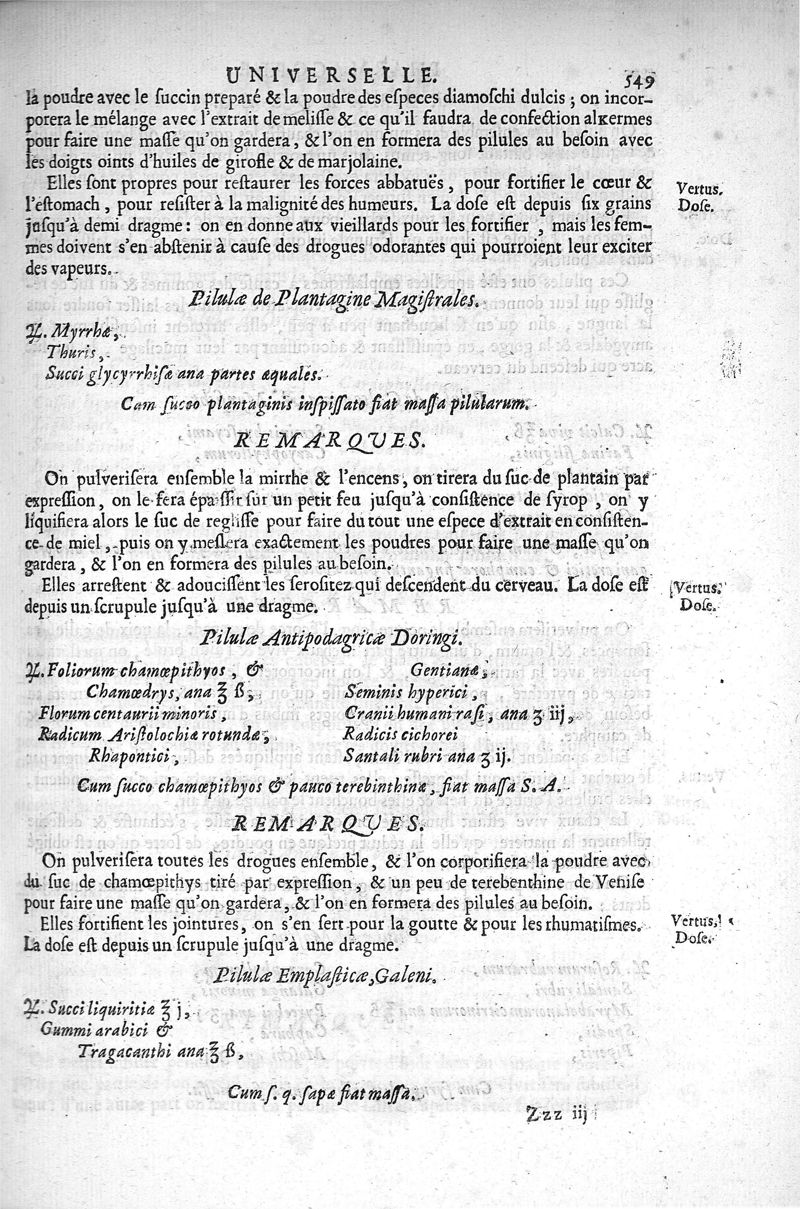 UNIVERSELLE. 549
la poudre avec le succin preparé & la poudre des especes diamoschi dulcis ; on incor-
porera le mêlange avec l'extrait de melisse & ce qu'il faudra de confection alkermes
pour faire une masse qu'on gardera, & l'on en formera des pilules au besoin avec
les doigts oints d'huiles de girofle & de marjolaine.
Elles sont propres pour restaurer les forces abbatuës, pour fortifier le cœur &
Vertus.
l'estomach, pour resister à la malignité des humeurs. La dose est depuis six grains
Dose.
jusqu'à demi dragme: on en donne aux vieillards pour les fortifier, mais les fem-
mes doivent s'en abstenir à cause des drogues odorantes qui pourroient leur exciter
des vapeurs.
Pilulæ de Plantagine Magistrales.
♃. Myrrhæ,
Thuris,
Succi glycyrrhisæ ana partes æquales.
Cum succo plantaginis inspissato fiat massa pilularum.
REMARQUES.
On pulverisera ensemble la mirrhe & l'encens, on tirera du suc de plantain par
expression, on le fera épaissir sur un petit feu jusqu'à consistence de syrop, on y
liquifiera alors le suc de reglisse pour faire du tout une espece d'extrait en consisten-
ce de miel, puis on y meslera exactement les poudres pour faire une masse qu'on
gardera, & l'on en formera des pilules au besoin.
Elles arrestent & adoucissent les serositez qui descendent du cerveau. La dose est
Vertus.
depuis un scrupule jusqu'à une dragme.
Dose.
Pilulæ Antipodagricæ Doringi.
♃. Foliorum chamœpithyos, &
Chamœdrys, ana ℥ ß,
Florum centaurii minoris,
Radicum Aristolochiæ rotundæ,
Rhapontici,
Gentianæ,
Seminis hyperici,
Cranii humani rasi, ana ʒ iij,
Radicis cichorei
Santali rubri ana ʒ ij.
Cum succo chamœpithyos & pauco terebinthinæ, fiat massa S. A.
REMARQUES.
On pulverisera toutes les drogues ensemble, & l'on corporifiera la poudre avec
du suc de chamœpithys tiré par expression, & un peu de terebenthine de Venise
pour faire une masse qu'on gardera, & l'on en formera des pilules au besoin.
Elles fortifient les jointures, on s'en sert pour la goutte & pour les rhumatismes.
Vertus.
La dose est depuis un scrupule jusqu'à une dragme.
Dose.
Pilulæ Emplasticæ, Galeni.
♃. Succi liquiritiæ ℥ j,
Gummi arabici &
Tragacanthi ana ℥ ß,
Cum s. q. sapæ fiat massa.
Zzz iij